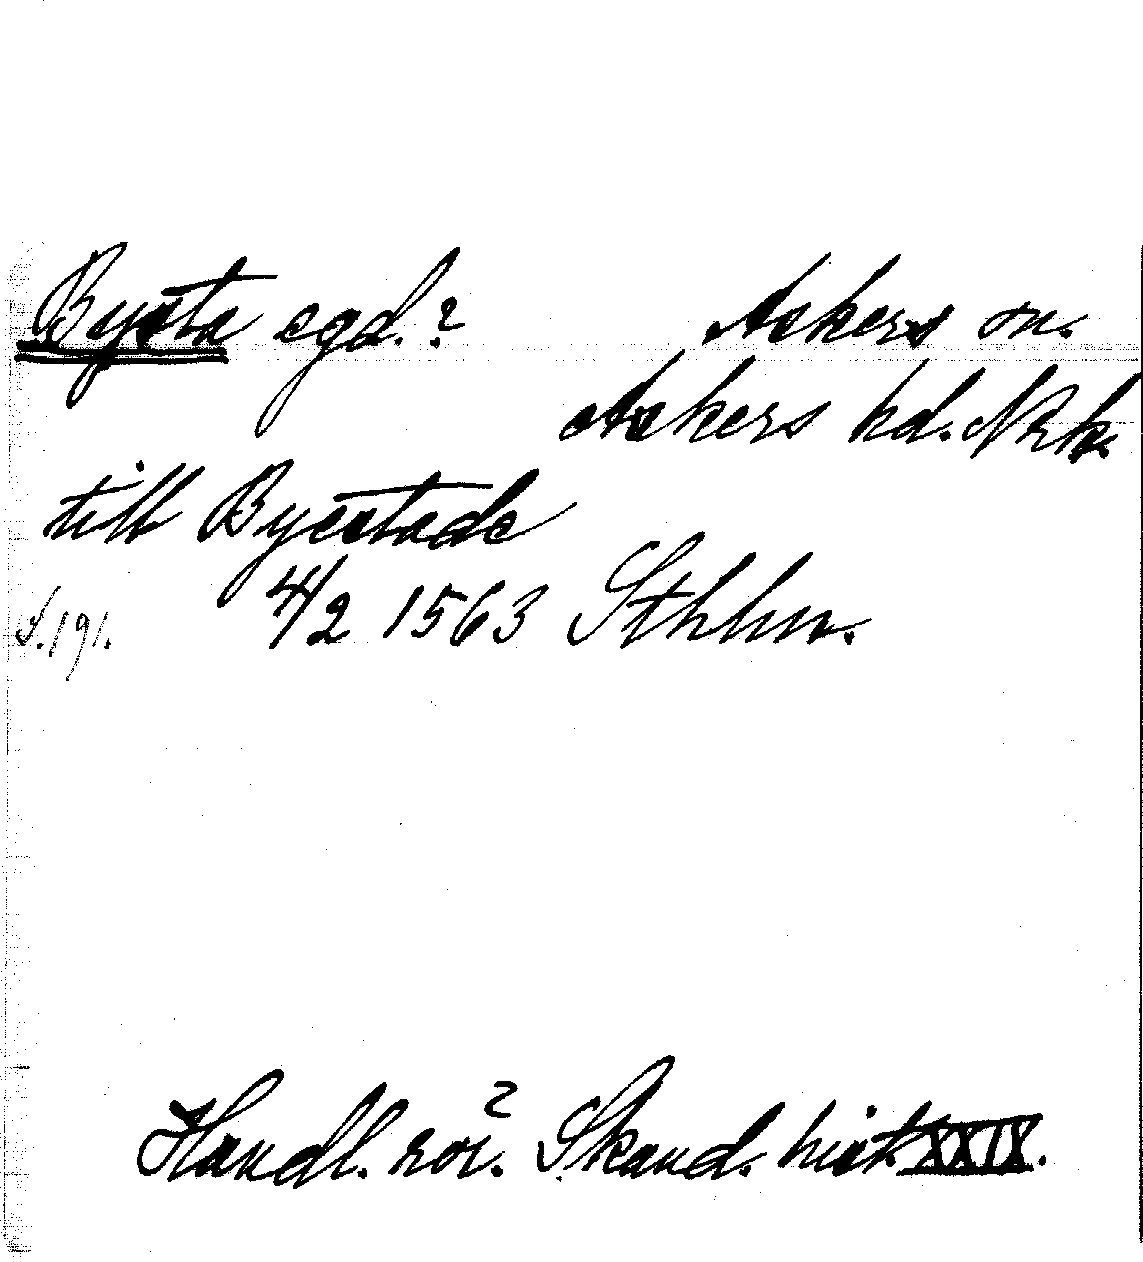 Bysta egd.? Askers sn.
Askers hd. Nrk.
till Byestade
4/2 1563 Sthlm.
S. 191.
Handl. rör. Skand. hist. XXIX.